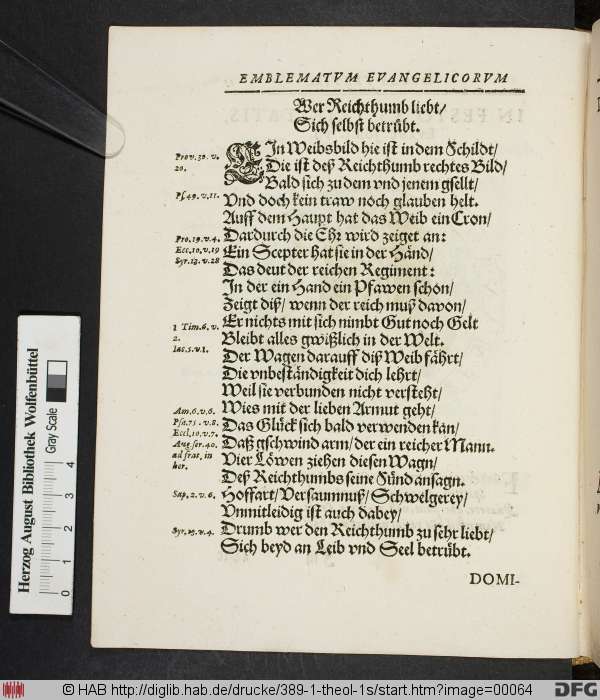 EMBLEMATVM EVANGELICORVM
Wer Reichthumb liebt/
Sich selbst betrübt.
EIn Weibsbild hie ist in dem Schildt/
Die ist deß Reichthumb rechtes Bild/
Bald sich zu dem vnd jenem gsellt/
Vnd doch kein traw noch glauben helt.
Auff dem Haupt hat das Weib ein Cron/
Dardurch die Ehr wird zeiget an:
Ein Scepter hat sie in der Händ/
Das deut der reichen Regiment:
In der ein Hand ein Pfawen schon/
Zeigt diß/ wenn der reich muß davon/
Er nichts mit sich nimbt Gut noch Gelt
Bleibt alles gwißlich in der Welt.
Der Wagen darauff diß Weib fährt/
Die vnbeständigkeit dich lehrt/
Weil sie verbunden nicht versteht/
Wies mit der lieben Armut geht/
Das Glück sich bald verwenden kan/
Daß gschwind arm/ der ein reicher Mann.
Vier Löwen ziehen diesen Wagn/
Deß Reichthumbs seine Sünd ansagn.
Hoffart/ Versaumnuß/ Schwelgerey/
Vnmitleidig ist auch dabey/
Drumb wer den Reichthumb zu sehr liebt/
Sich beyd an Leib vnd Seel betrübt.
DOMI-
Prov. 30. v.
20.
Ps. 49. v. 11.
Pro. 19. v. 4.
Ecc. 10. v. 19
Syr. 13. v. 28
1 Tim. 6. v.
2.
Iac. 5. v. 1.
Am. 6. v. 6.
Psa. 75. v. 8.
Eccl. 10. v. 7.
Aug. ser. 40.
ad frat. in
her.
Sap. 2. v. 6.
Syr. 25. v. 4.
Herzog August Bibliothek Wolfenbüttel
Gray Scale
0 1 2 3 4
© HAB http://diglib.hab.de/drucke/389-1-theol-1s/start.htm?image=00064
DFG